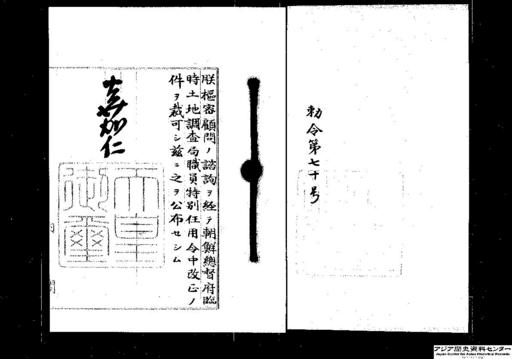 勅令第七十号
朕枢密顧問ノ諮詢ヲ経テ朝鮮総督府臨
時土地調査局職員特別任用令中改正ノ
件ヲ裁可シ茲ニ之ヲ公布セシム
嘉仁
天皇
御璽
アジア歴史資料センター
Japan Center for Asian Historical Records